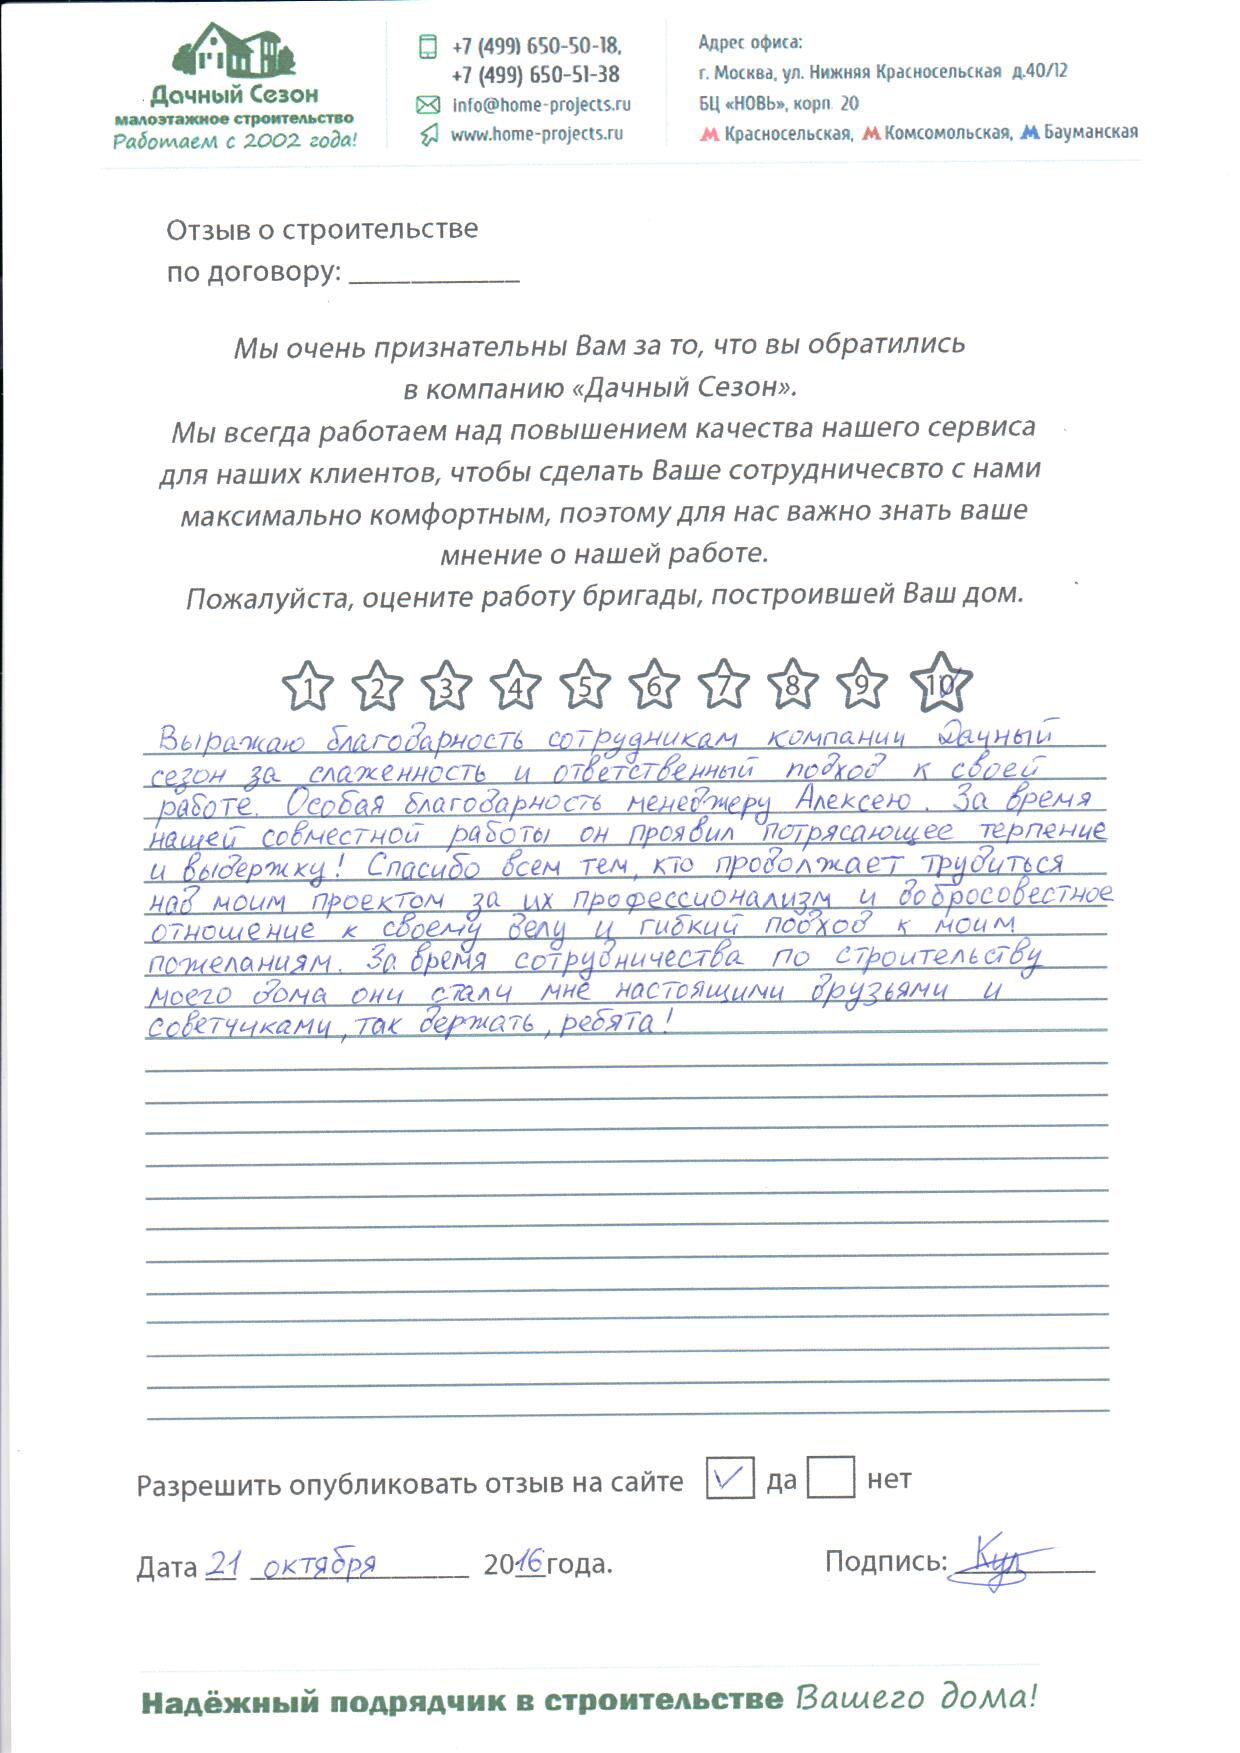 Дачный Сезон
малоэтажное строительство
Работаем с 2002 года!
+7 (499) 650-50-18,
+7 (499) 650-51-38
info@home-projects.ru
www.home-projects.ru
Адрес офиса:
г. Москва, ул. Нижняя Красносельская д.40/12
БЦ «НОВЬ», корп. 20
Красносельская, Комсомольская, Бауманская
Отзыв о строительстве
по договору: ____________
Мы очень признательны Вам за то, что вы обратились
в компанию «Дачный Сезон».
Мы всегда работаем над повышением качества нашего сервиса
для наших клиентов, чтобы сделать Ваше сотрудничесвто с нами
максимально комфортным, поэтому для нас важно знать ваше
мнение о нашей работе.
Пожалуйста, оцените работу бригады, построившей Ваш дом.
1 2 3 4 5 6 7 8 9 10
Выражаю благодарность сотрудникам компании Дачный
сезон за слаженность и ответственный подход к своей
работе. Особая благодарность менеджеру Алексею. За время
нашей совместной работы он проявил потрясающее терпение
и выдержку! Спасибо всем тем, кто продолжает трудиться
над моим проектом за их профессионализм и добросовестное
отношение к своему делу и гибкий подход к моим
пожеланиям. За время сотрудничества по строительству
моего дома они стали мне настоящими друзьями и
советчиками, так держать, ребята!
Разрешить опубликовать отзыв на сайте да нет
Дата 21 октября 2016 года. Подпись:
Надёжный подрядчик в строительстве Вашего дома!